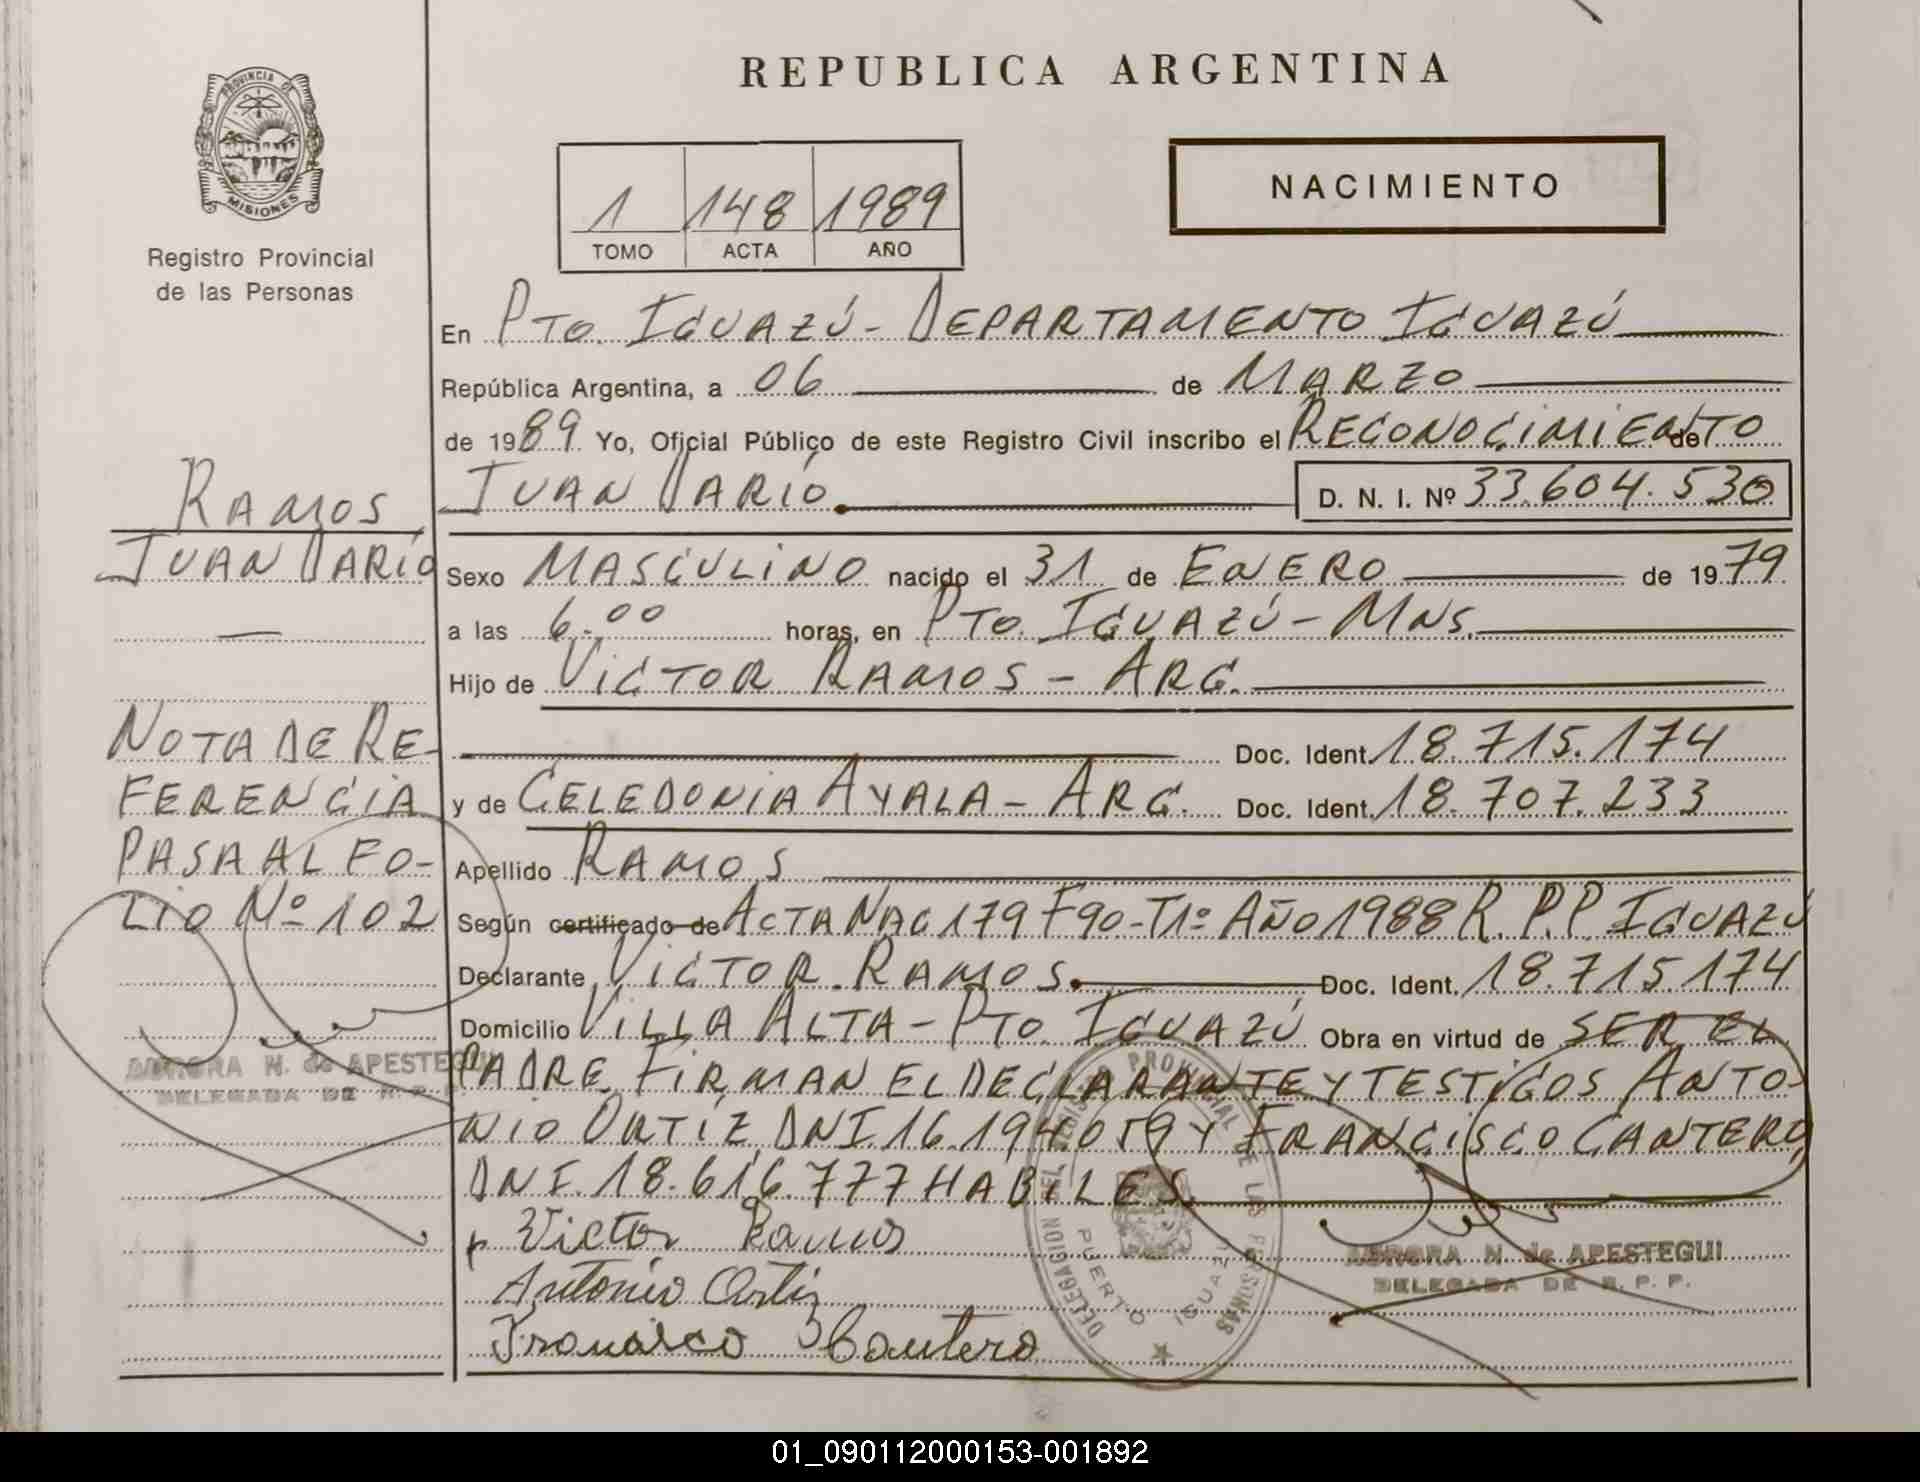 REPUBLICA ARGENTINA
PROVINCIA DE MISIONES
Registro Provincial
de las Personas
1 148 1989
TOMO ACTA AÑO
NACIMIENTO
En Pto. Iguazú - Departamento Iguazú
República Argentina, a 06 de Marzo
de 1989 Yo, Oficial Público de este Registro Civil inscribo el Reconocimiento de
Juan Darío. D. N. I. Nº 33.604.530
Ramos
Juan Darío
Sexo Masculino nacido el 31 de Enero de 1979
a las 6.00 horas, en Pto. Iguazú - Mns.
Hijo de Victor Ramos - Arg.
Doc. Ident. 18.715.174
y de Celedonia Ayala - Arg. Doc. Ident. 18.707.233
Apellido Ramos
Según certificado de Acta Nac 179 F90-T1º Año 1988 R.P.P. Iguazú
Declarante Victor Ramos. Doc. Ident. 18.715.174
Domicilio Villa Alta - Pto. Iguazú Obra en virtud de ser el
padre. Firman el declarante y testigos Anto-
nio Ortíz DNI. 16.194.059 y Francisco Cantero
DNI. 18.616.777 Habiles.
Victor Ramos
Antonio Ortiz
Francisco Cantero
Nota de Re-
ferencia
pasa al Fo-
lio Nº 102
AURORA N. de APESTEGUI
DELEGADA DE R. P. P.
AURORA N. de APESTEGUI
DELEGADA DE R. P. P.
DELEGACION DEL REGISTRO PROVINCIAL DE LAS PERSONAS
PUERTO IGUAZU
01_090112000153-001892